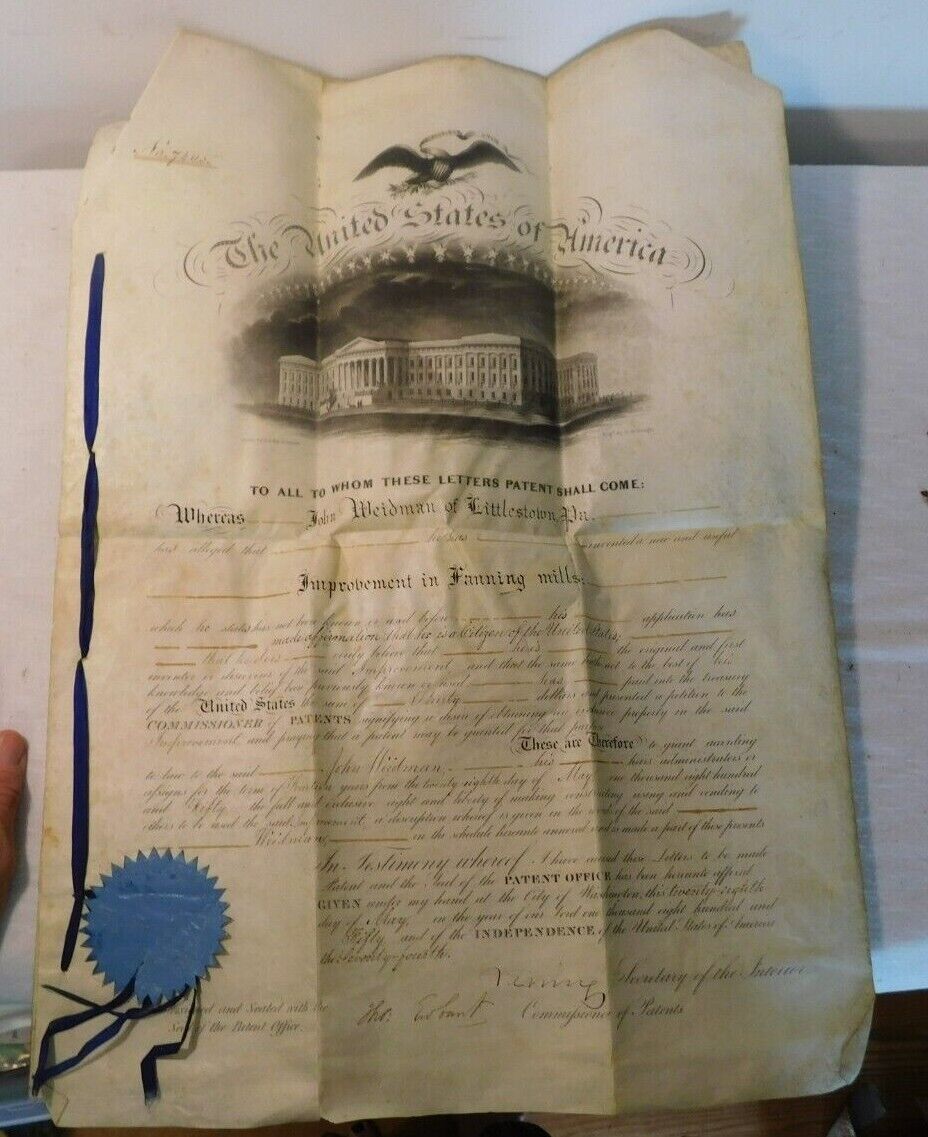 The United States of America
TO ALL TO WHOM THESE LETTERS PATENT SHALL COME:
Whereas John Weidman of Littlestown, Pa.
has alleged that he has invented a new and useful
Improvement in Fanning mills:
which he states has not been known or used before his application has
made affirmation that he is a Citizen of the United States,
that he does verily believe that he is the original and first
inventor or discoverer of the said Improvement and that the same hath not to the best of his
knowledge and belief been previously known or used has paid into the treasury
of the United States the sum of thirty dollars and presented a petition to the
COMMISSIONER of PATENTS signifying a desire of obtaining an exclusive property in the said
Improvement, and praying that a patent may be granted for that purpose
These are Therefore to grant according
to law to the said John Weidman, his heirs administrators or
assigns for the term of fourteen years from the twenty eighth day of May one thousand eight hundred
and Fifty the full and exclusive right and liberty of making constructing using and vending to
others to be used the said improvement, a description whereof is given in the words of the said
Weidman, in the schedule hereunto annexed and is made a part of these presents
In Testimony whereof I have caused these Letters to be made
Patent and the Seal of the PATENT OFFICE has been hereunto affixed
GIVEN under my hand at the City of Washington, this twenty-eighth
day of May, in the year of our lord one thousand eight hundred and
Fifty and of the INDEPENDENCE of the United States of America
the Seventy-fourth.
Ewing Secretary of the Interior
and Sealed with the
Seal of the Patent Office.
Commissioner of Patents